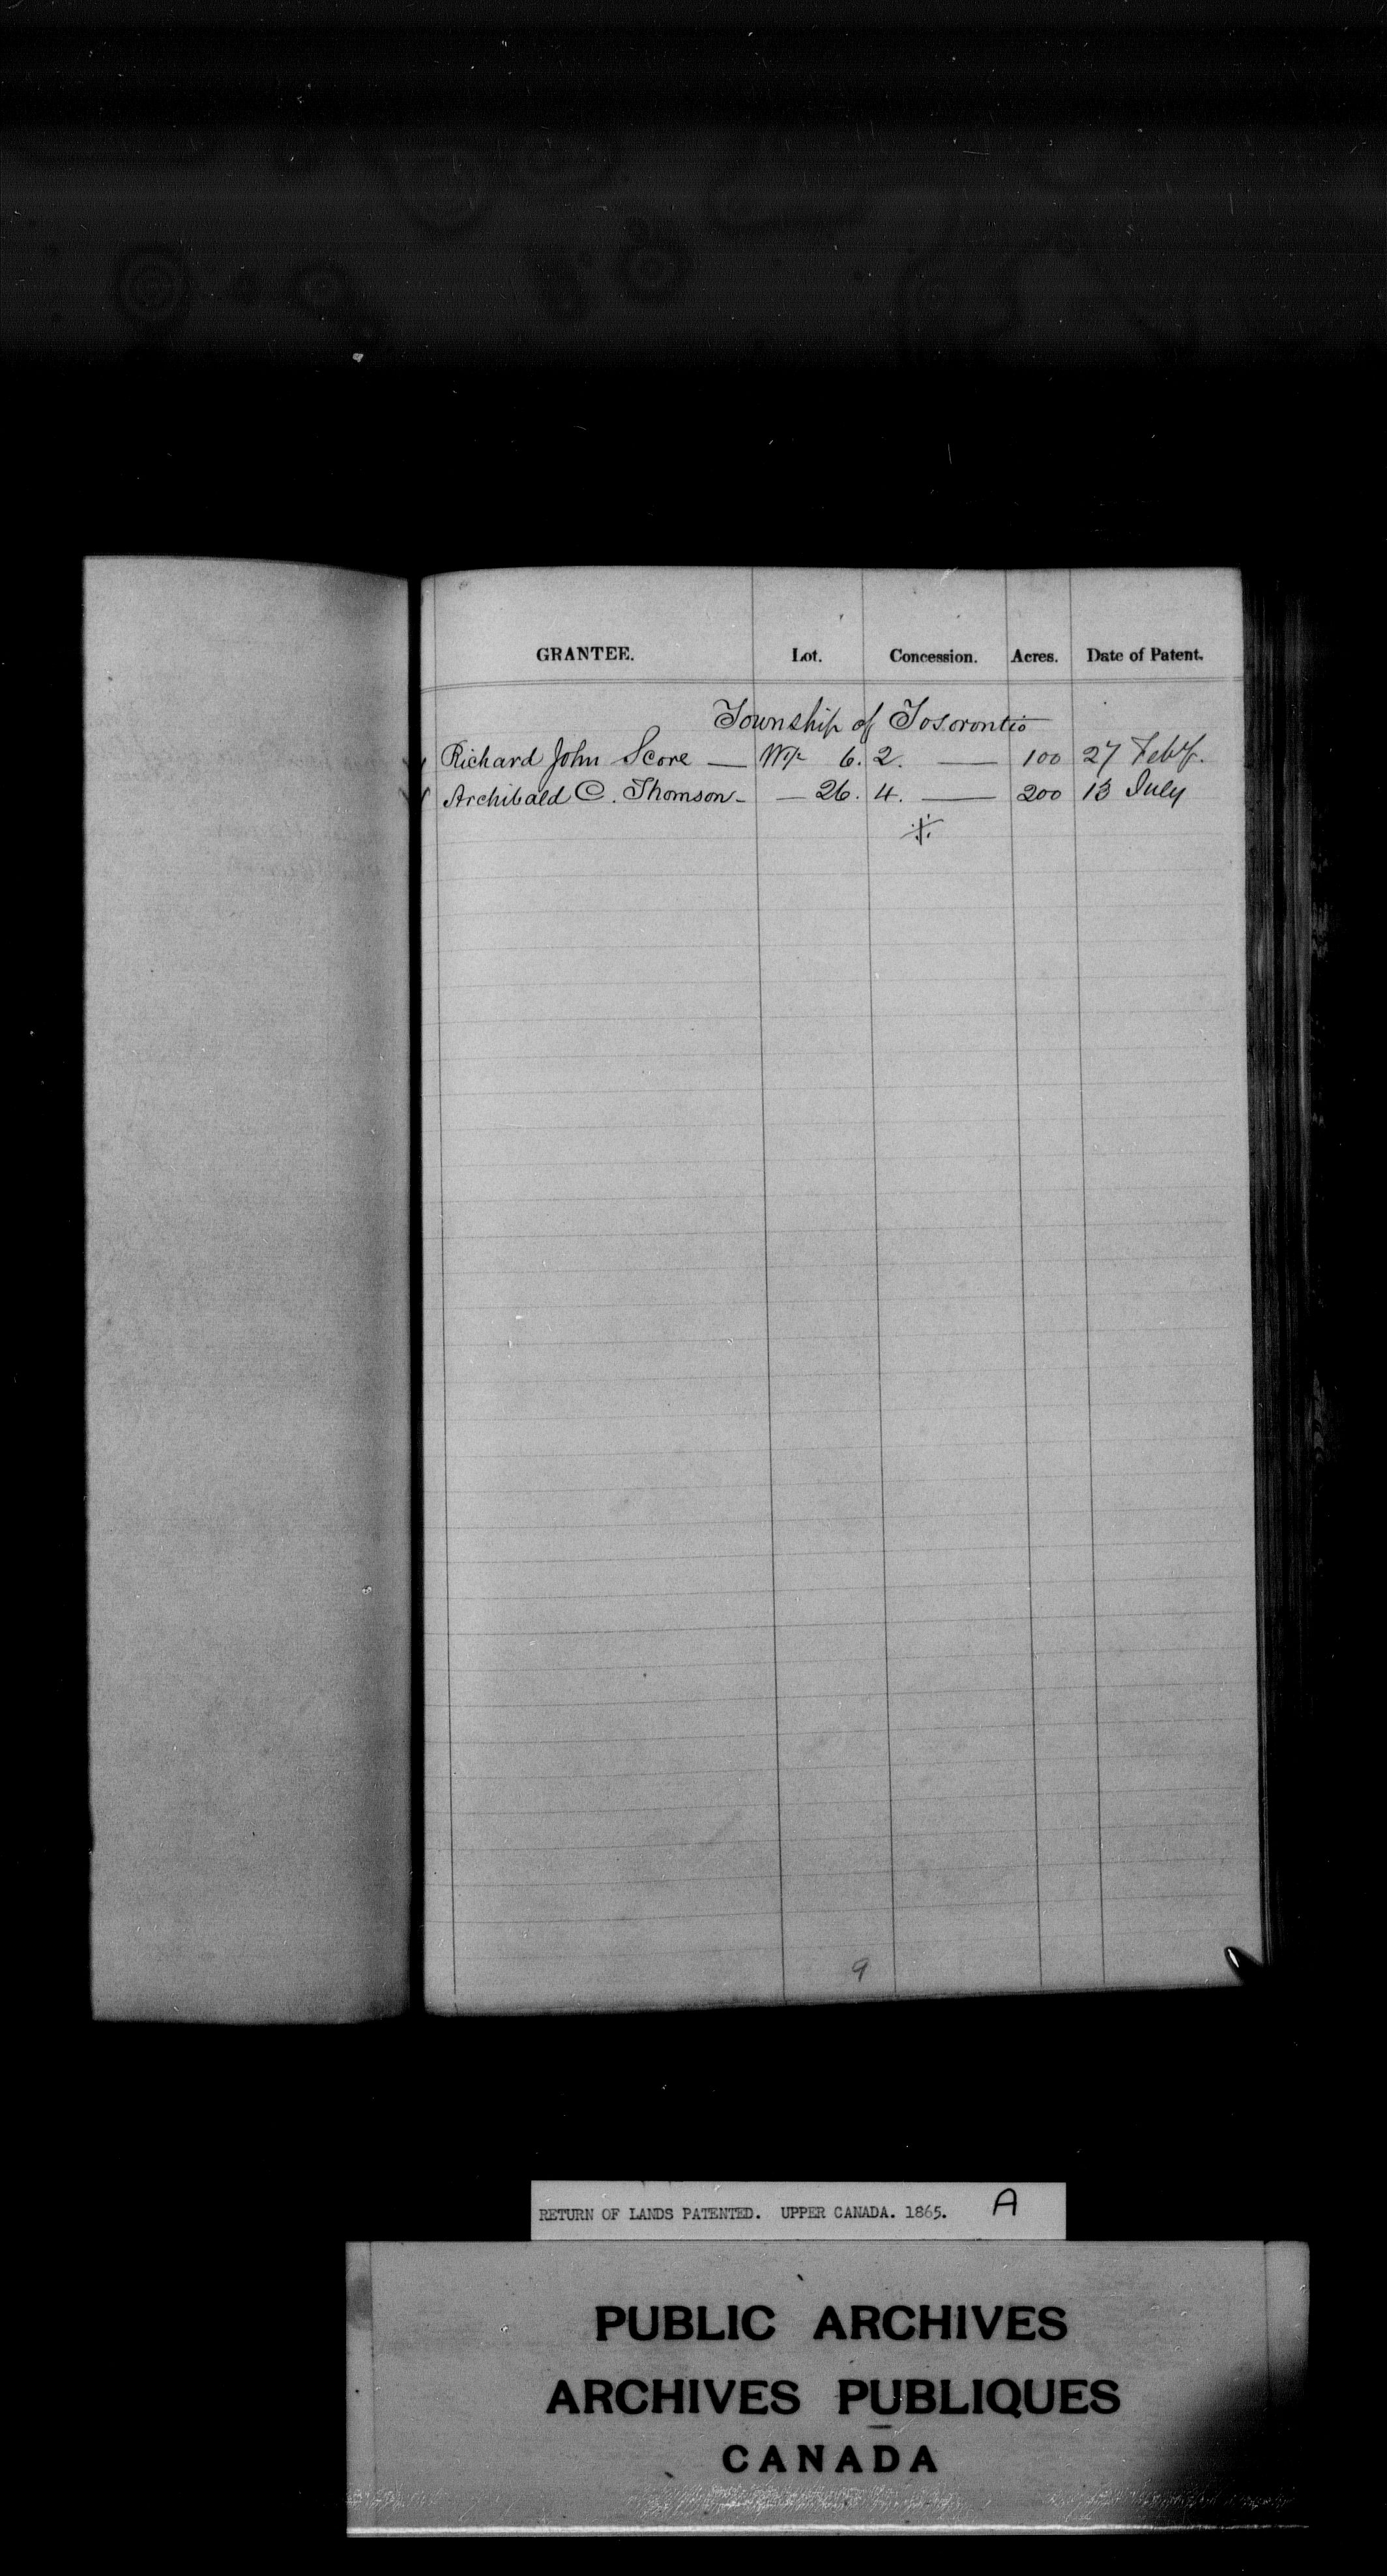 GRANTEE. Lot. Concession. Acres. Date of Patent.
Township of Tosorontio
Richard John Score — W½ 6. 2. — 100 27 Feby.
Archibald C. Thomson - — 26. 4. — 200 13 July
9
RETURN OF LANDS PATENTED. UPPER CANADA. 1865. A
PUBLIC ARCHIVES
ARCHIVES PUBLIQUES
CANADA